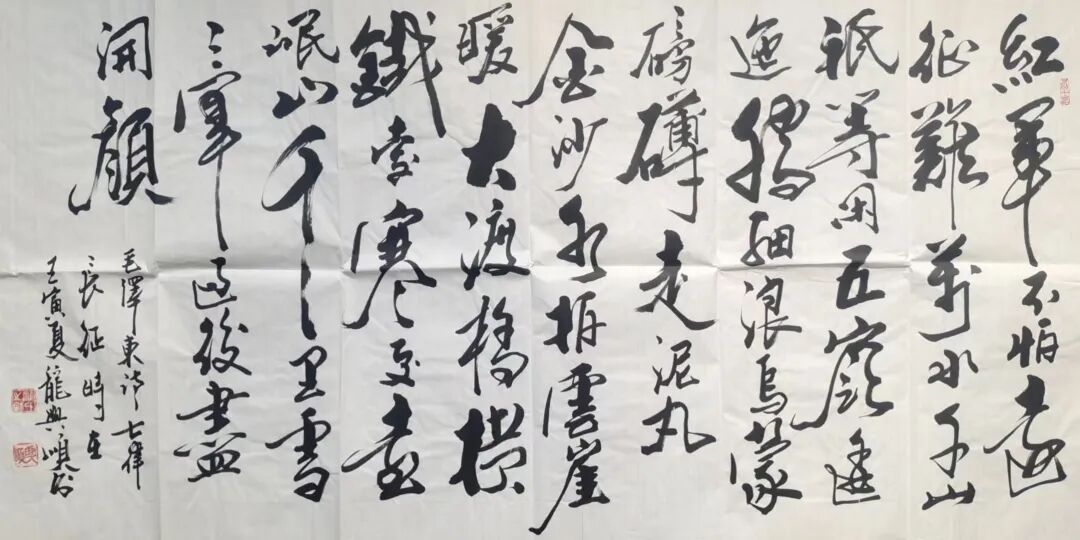 紅軍不怕遠
征難萬水千山
祇等閑五嶺逶
迤騰細浪烏蒙
磅礴走泥丸
金沙水拍雲崖
暖大渡橋橫
鐵索寒更喜
岷山千里雪
三軍過後盡
開顏
毛澤東詩七律
長征時在
壬寅夏龍興